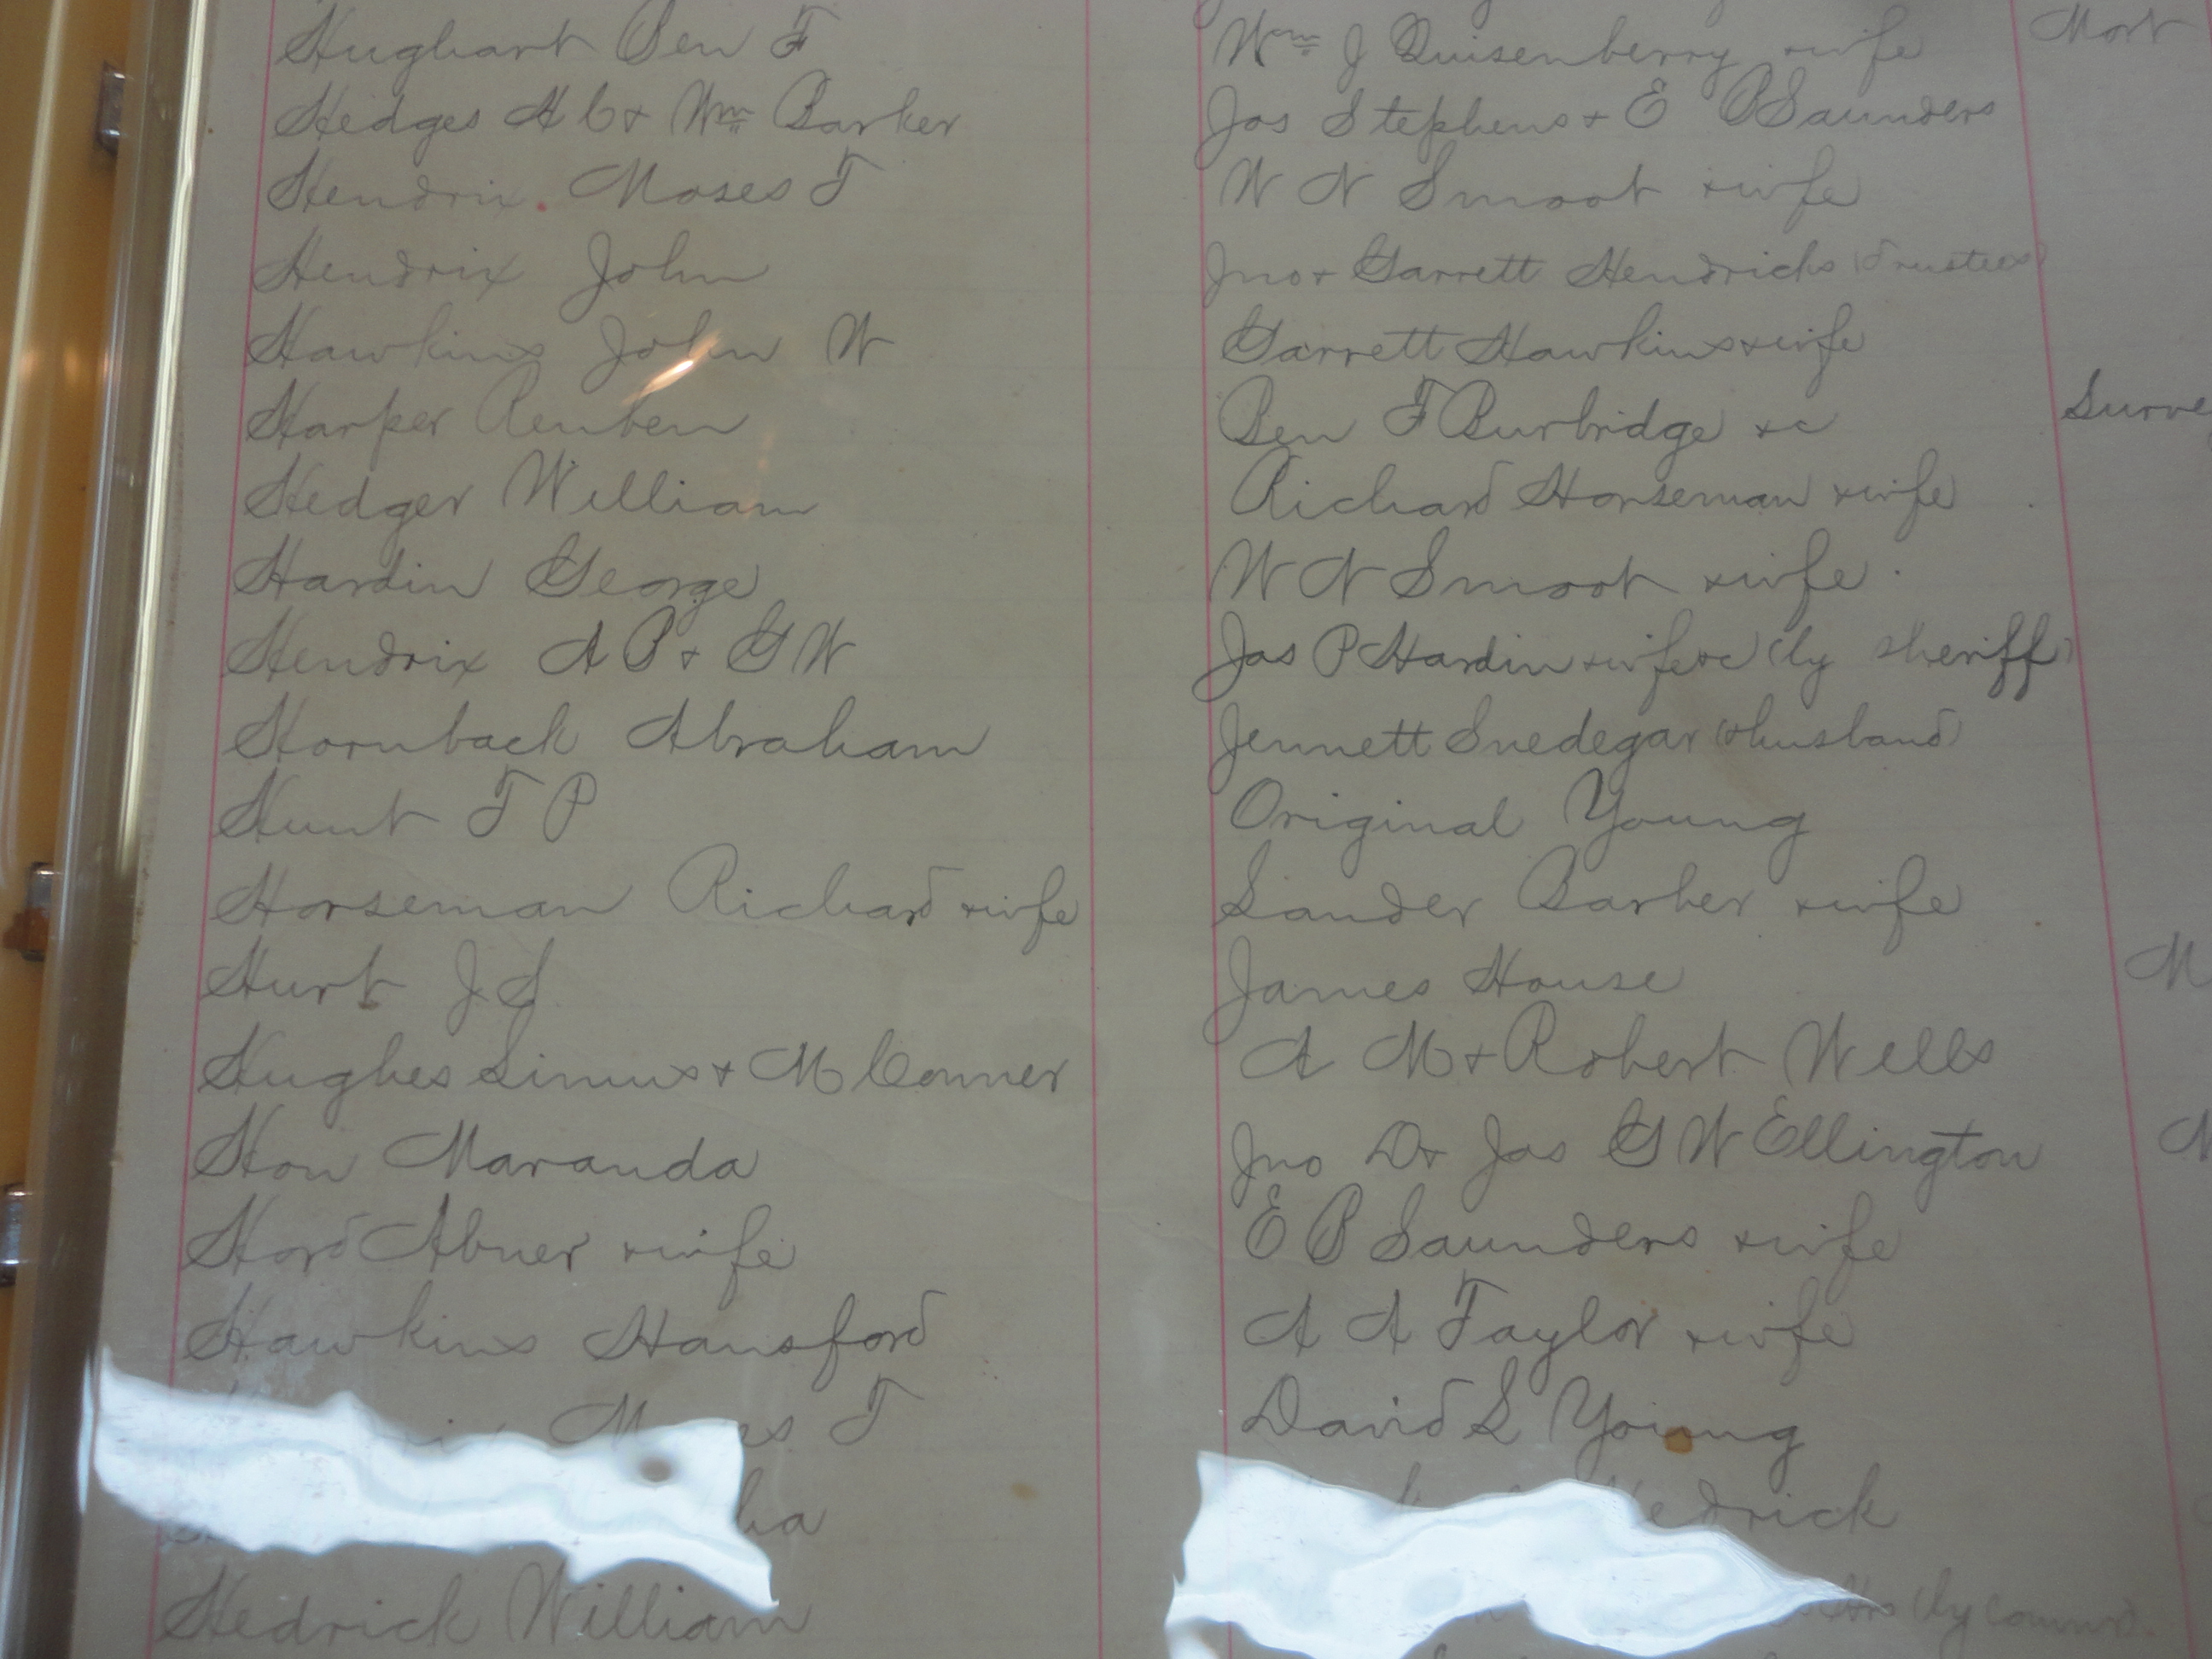 Hughart Ben F Wm J Quisenberry & wife Mort
Hedges A C & Wm Barker Jas Stephens & E P Saunders
Hendrix Moses T W N Smoot & wife
Hendrix John Jno & Garrett Hendricks (trustees)
Hawkins John W Garrett Hawkins & wife
Harper Reuben Ben F Burbridge &c Surve
Hedger William Richard Horseman & wife
Hardin George W N Smoot & wife
Hendrix A B & G W Jas P Hardin & wife &c (by sheriff)
Hornback Abraham Jennett Snedegar (& husband)
Hunt T P Original Young
Horseman Richard & wife Sander Barber & wife
Hurt J S James House M
Hughes Linus & M Conner A M & Robert Wells
Hon Maranda Jno D & Jas G W Ellington
Hord Abner & wife E B Saunders & wife
Hawkins Hansford A A Taylor & wife
T David S Young
Hedrick William (by commr)